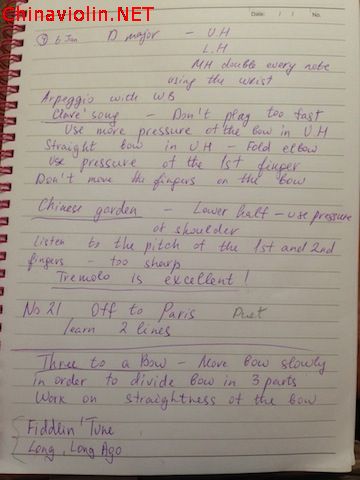 Chinaviolin.NET
Date: / / No.
③ 6 Jan D major - UH
L.H
MH double every note
using the wrist
Arpeggio with WB
Clave' song - Don't play too fast
Use more pressure of the bow in UH
Straight bow in UH - Fold elbow
Use pressure of the 1st finger
Don't move the fingers on the bow
Chinese garden - Lower half - use pressure
of shoulder
Listen to the pitch of the 1st and 2nd
fingers - too sharp
Tremolo is excellent!
No 21 Off to Paris Duet
learn 2 lines
Three to a Bow - Move bow slowly
in order to divide bow in 3 parts
Work on straightness of the bow
Fiddlin' Tune
Long, Long Ago